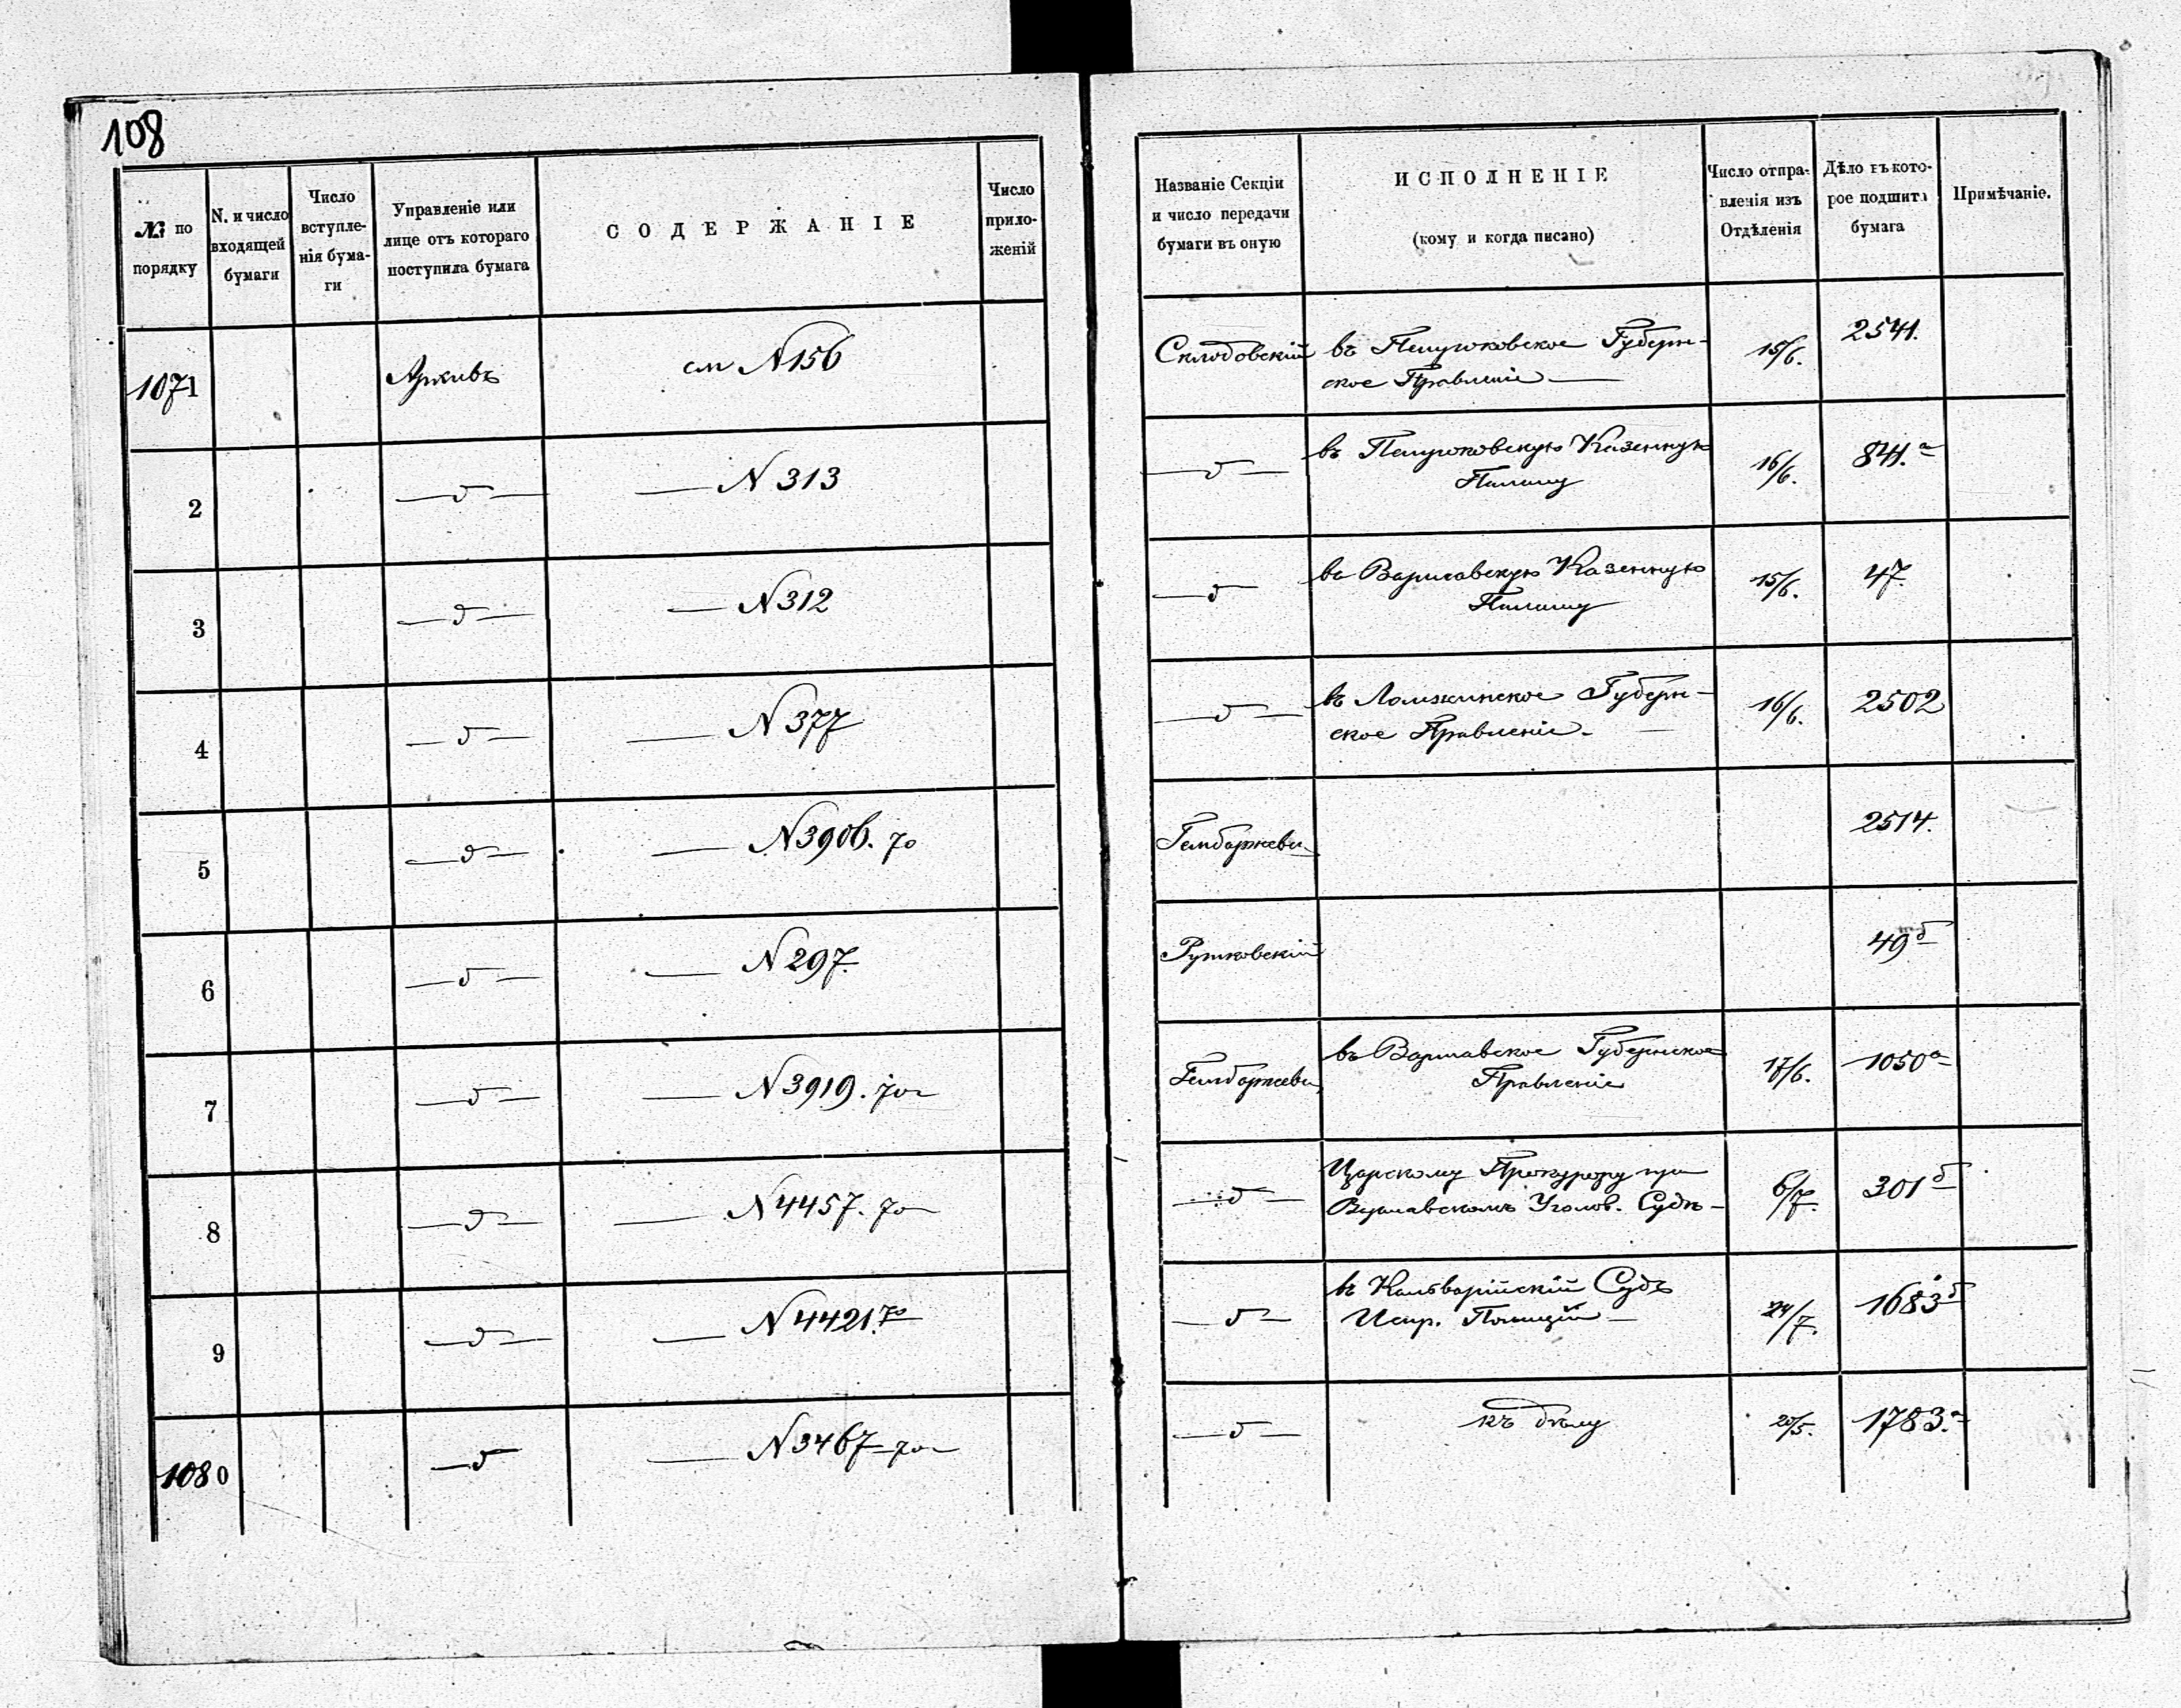 108
№ по
порядку
N. и число
входящей
бумаги
Число
вступле-
нія бума-
ги
Управленіе или
лице отъ котораго
поступила бумага
СОДЕРЖАНІЕ
Число
прило-
женій
Названіе Секціи
и число передачи
бумаги въ оную
ИСПОЛНЕНІЕ
(кому и когда писано)
Число отпра-
вленія изъ
Отдѣленія
Дѣло въ кото-
рое подшита
бумага
Примѣчаніе.
1071 Архивъ см N 156 Склодовскій въ Петроковское Губерн- 15/6. 2541.
ское Правленіе —
2 — д — — N 313 — д — въ Петроковскую Казенную 16/6. 841.а
Палату
3 — д — — N 312 — д — въ Варшавскую Казенную 15/6. 47.
Палату
4 — д — — N 377 — д — въ Ломжинское Губерн- 16/6. 2502
ское Правленіе. —
5 — д — — N 3906. 70 2514.
6 — д — — N 297. Рутковскій 49б
7 — д — — N 3919. 70 въ Варшавское Губернское 17/6. 1050а
Правленіе
8 — д — — N 4457. 70 — д — Царскому Прокурору при 6/7. 301б
Варшавскомъ Уголов. Судѣ —
9 — д — — N 4421. 70 — д — въ Кальварійскій Судъ 24/7. 1683б
Испр. Полиціи —
1080 — д — N 3467 — 70 — д — къ дѣлу 20/5. 1783.а